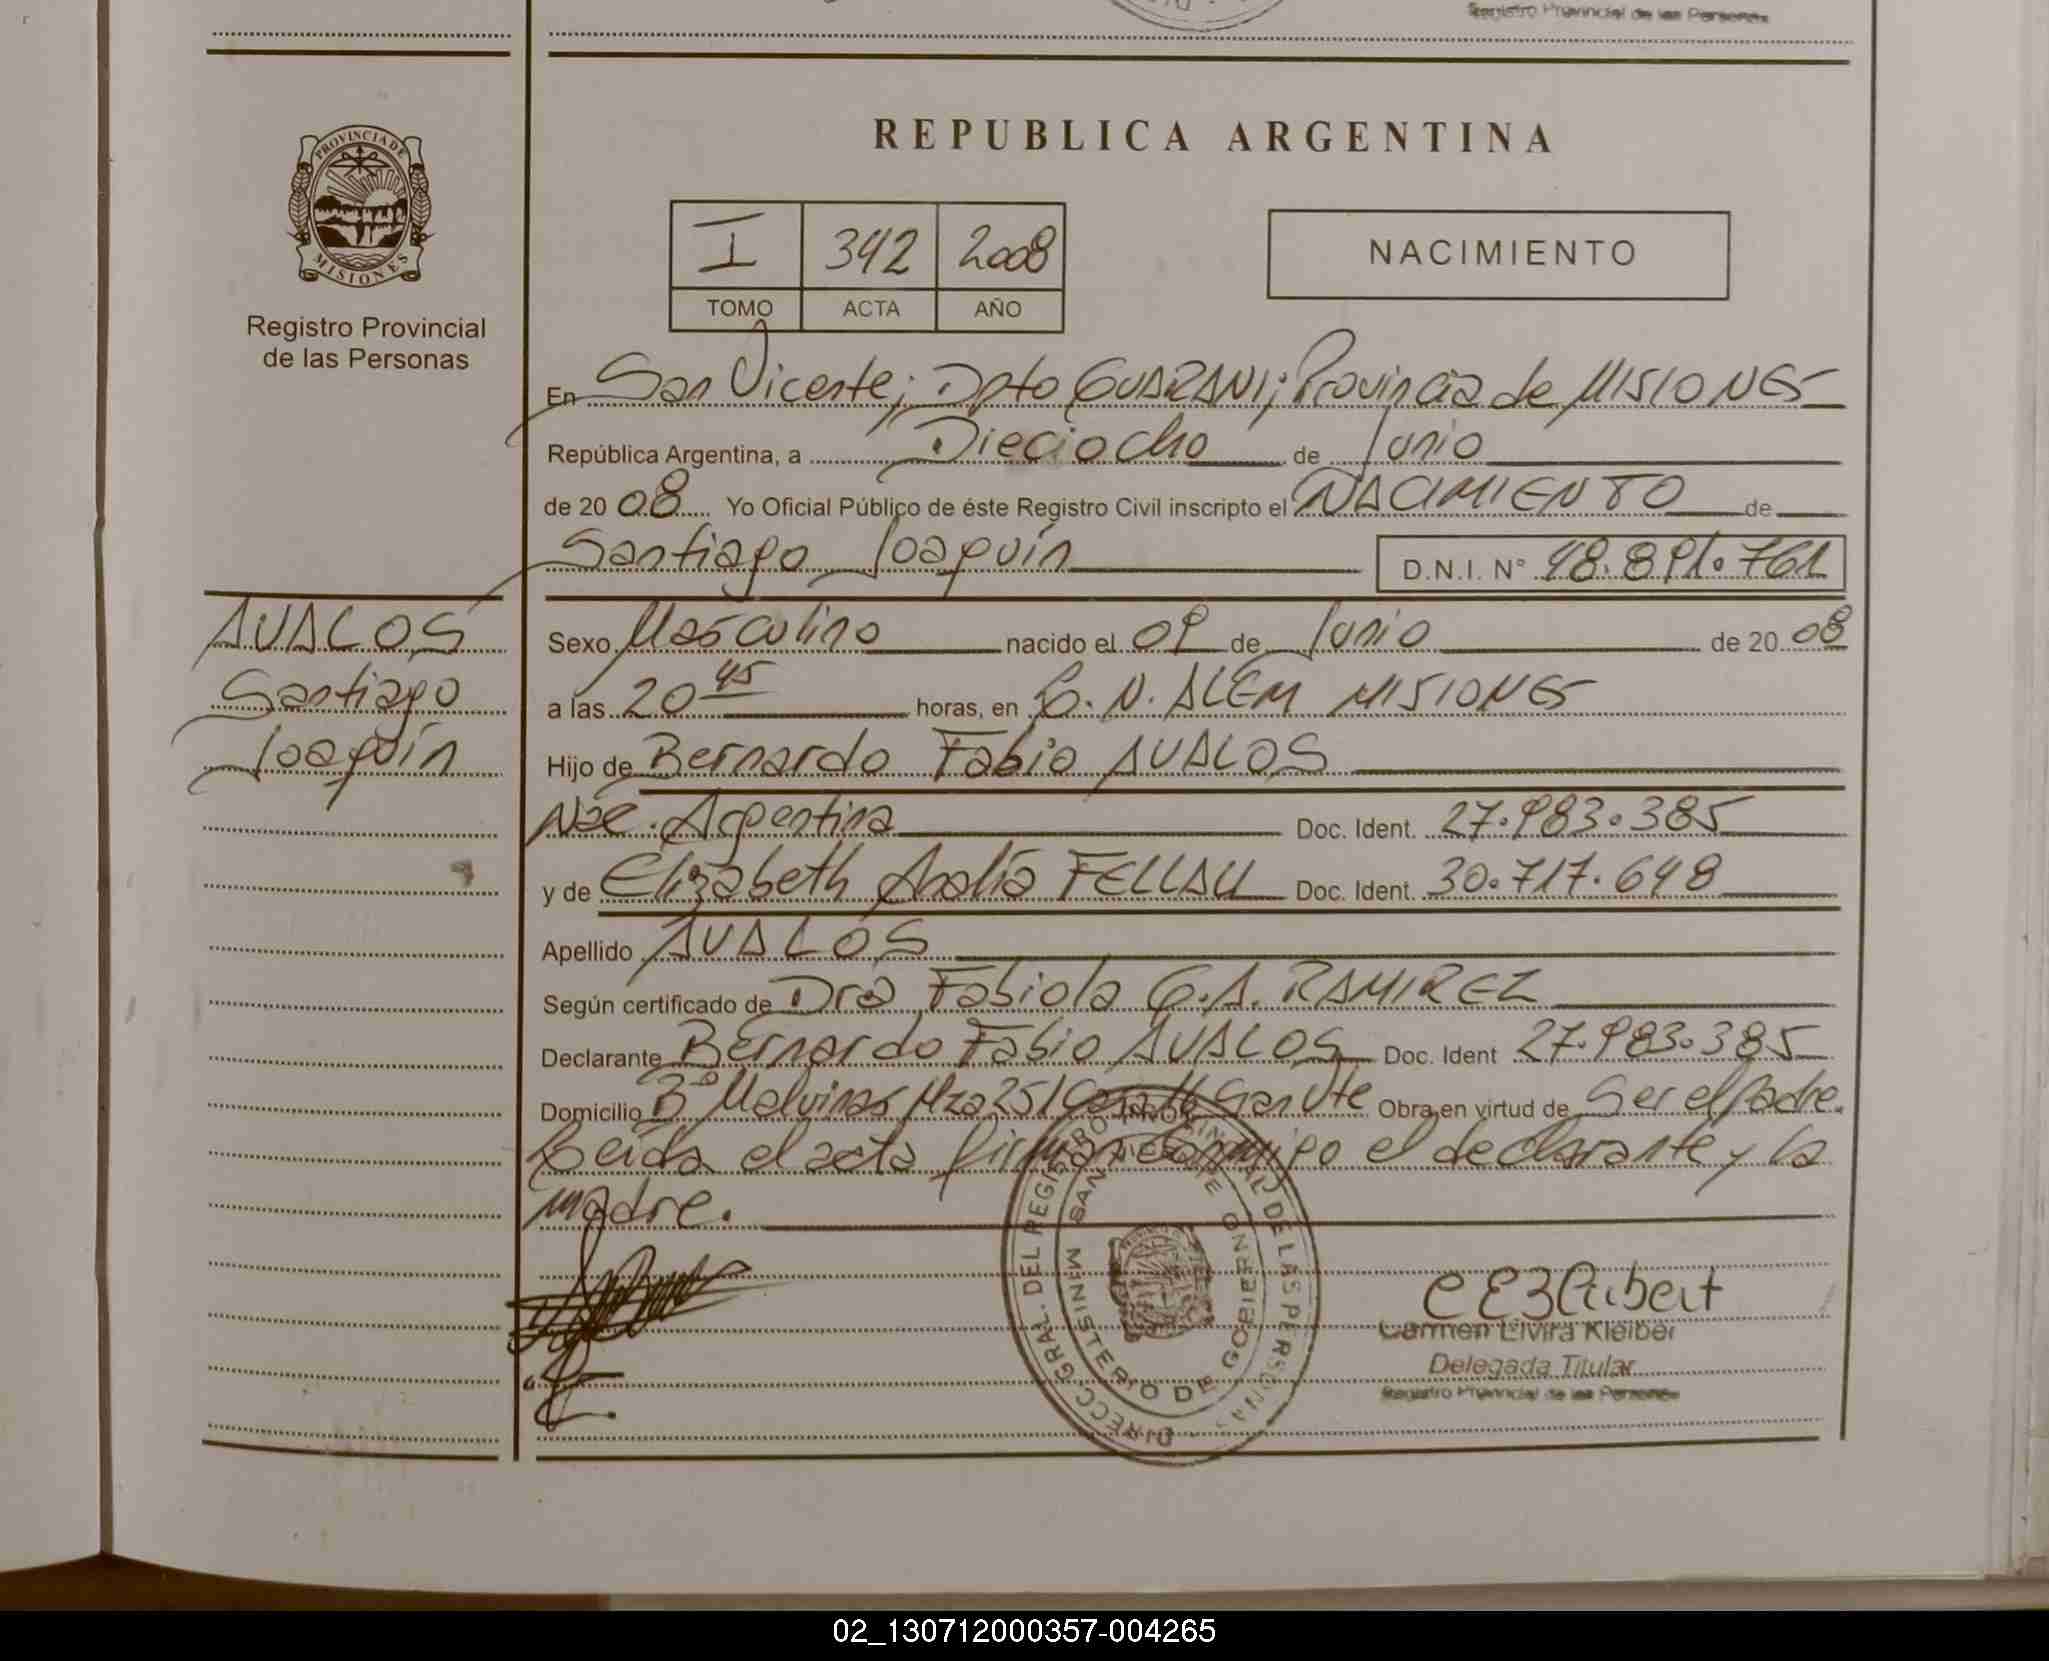 Registro Provincial de las Personas
PROVINCIA DE
MISIONES
Registro Provincial
de las Personas
REPUBLICA ARGENTINA
I 342 2008
TOMO ACTA AÑO
NACIMIENTO
En San Vicente; Dpto GUARANI; Provincia de MISIONES
República Argentina, a Dieciocho de Junio
de 2008 Yo Oficial Público de éste Registro Civil inscripto el NACIMIENTO de
Santiago Joaquín D.N.I. N° 48.891.761
AVALOS
Santiago
Joaquín
Sexo Masculino nacido el 09 de Junio de 2008
a las 20 45 horas, en L. N. ALEM MISIONES
Hijo de Bernardo Fabio AVALOS
Nac. Argentina Doc. Ident. 27.983.385
y de Elizabeth Analía FELLAU Doc. Ident. 30.717.648
Apellido AVALOS
Según certificado de Dra Fabiola G.A. RAMIREZ
Declarante Bernardo Fabio AVALOS Doc. Ident 27.983.385
Domicilio B° Malvinas Mza 25 Casa San Vte Obra en virtud de Ser el padre.
Leída el acta firman conmigo el declarante y la
madre.
DIRECC GRAL. DEL REGISTRO PROVINCIAL DE LAS PERSONAS
MINISTERIO DE GOBIERNO
SAN VICENTE
Carmen Elvira Kleiber
Delegada Titular
Registro Provincial de las Personas
02_130712000357-004265